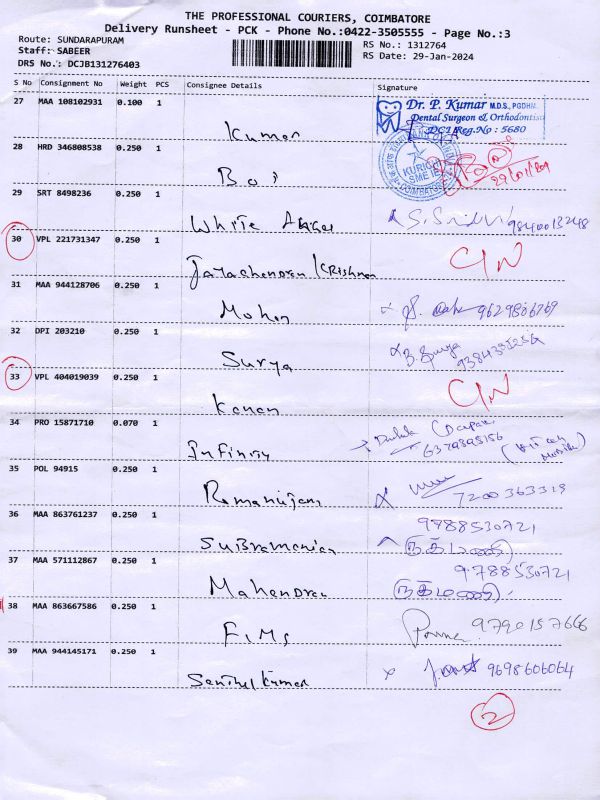 THE PROFESSIONAL COURIERS, COIMBATORE
Delivery Runsheet - PCK - Phone No.:0422-3505555 - Page No.:3
Route: SUNDARAPURAM
RS No.: 1312764
Staff: SABEER
RS Date: 29-Jan-2024
DRS No.: DCJB131276403
S No Consignment No Weight PCS Consignee Details Signature
27 MAA 108102931 0.100 1 Kumar
Dr. P. Kumar M.D.S., PGDHM.
Dental Surgeon & Orthodontist
DCI Reg.No : 5680
28 HRD 346808538 0.250 1 Boi
KURICHI
SME IE
COIMBATORE
29 SRT 8498236 0.250 1 White
9840013248
30 VPL 221731347 0.250 1 Jayachendren Krishnan
C/N
31 MAA 944128706 0.250 1 Mohan
9629806769
32 DPI 203210 0.250 1 Surya
B. Surya
33 VPL 404019039 0.250 1 Kanan
C/N
34 PRO 15871710 0.070 1 Infinity
6379395156
35 POL 94915 0.250 1 Ramanujam
7200363319
36 MAA 863761237 0.250 1 Subramanian
9788530721
37 MAA 571112867 0.250 1 Mahendran
9788530721
38 MAA 863667586 0.250 1 FIMS
9790157666
39 MAA 944145171 0.250 1 Senthil Kumar
9698606064
2